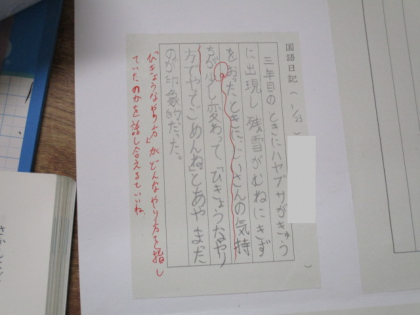 国語日記(1/23)
三年目のときにハヤブサがきゅう
に出現し残雪がむねにきず
をおったときに、じいさんの気持
ちが少し変わって、ひきょうなやり
方でごめんねとあやまった
のが印象的だった。
ひきょうなやり方」がどんなやり方を指し
ていたのかを話し合えるといいね。